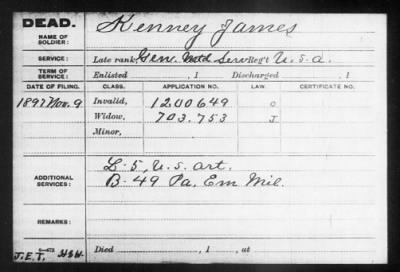 DEAD.
NAME OF SOLDIER: Kenney James
SERVICE: Late rank, Gen. Mtd Serv Reg't U.S.A.
TERM OF SERVICE: Enlisted , 1 Discharged , 1
DATE OF FILING. CLASS. APPLICATION NO. LAW. CERTIFICATE NO.
1897 Nov. 9 Invalid, 1200649 O
Widow, 703.753 J
Minor,
ADDITIONAL SERVICES: L-5, U.S. Art.
B-49 Pa. Em Mil.
REMARKS:
J.E.T. Died , 1 , at